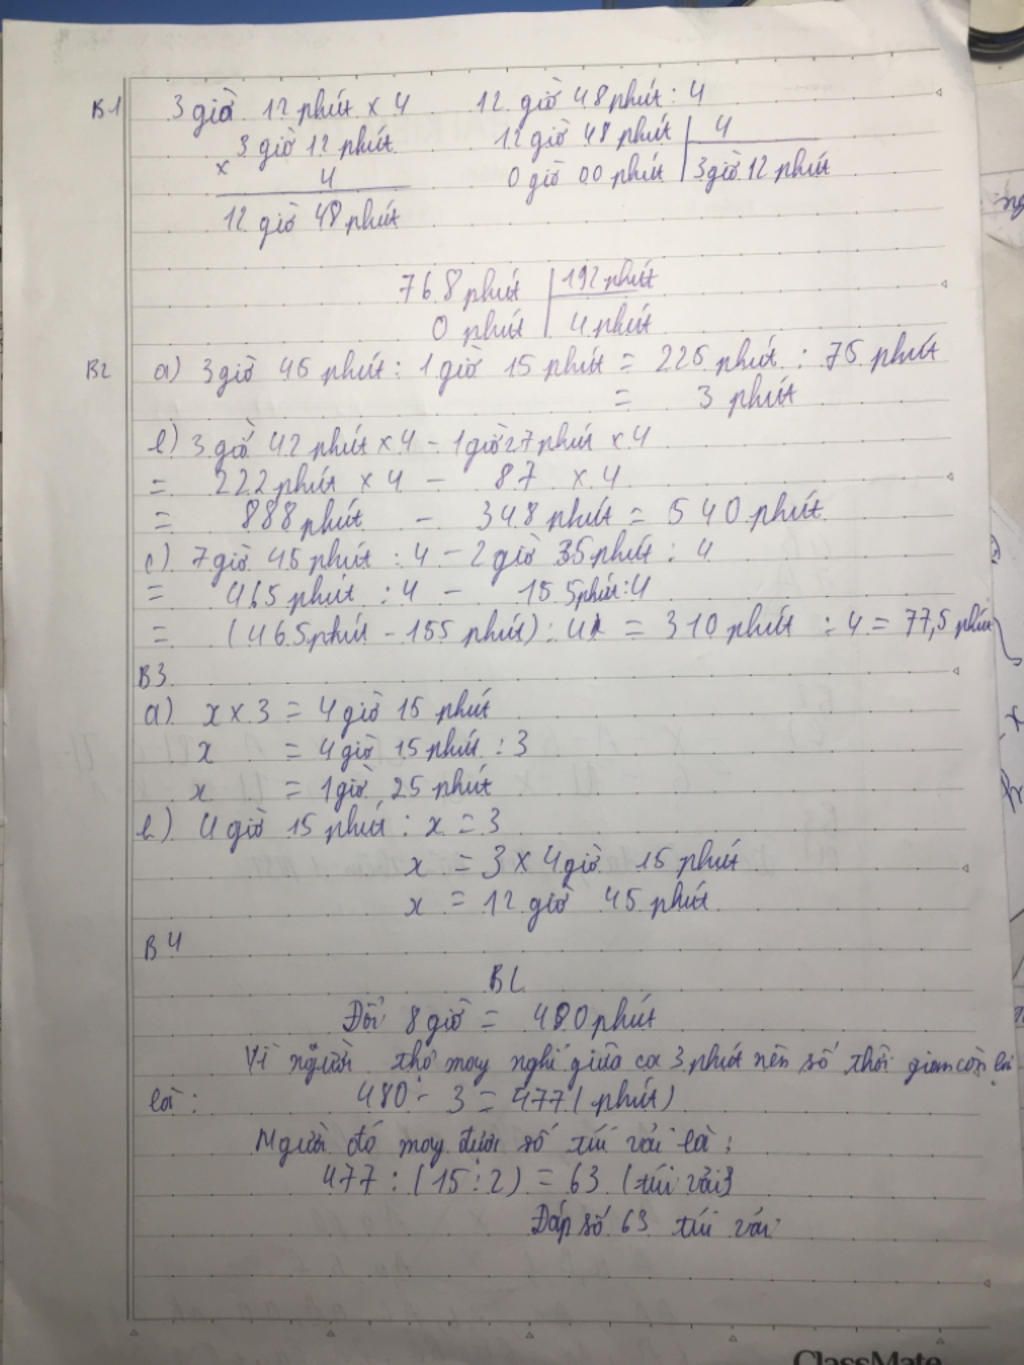 B1 3 giờ 12 phút x 4 12 giờ 48 phút : 4
3 giờ 12 phút 12 giờ 48 phút 4
x 4 0 giờ 00 phút 3 giờ 12 phút
12 giờ 48 phút
768 phút 192 phút
0 phút 4 phút
B2 a) 3 giờ 45 phút : 1 giờ 15 phút = 225 phút : 75 phút
= 3 phút
b) 3 giờ 42 phút x 4 - 1 giờ 27 phút x 4
= 222 phút x 4 - 87 x 4
= 888 phút - 348 phút = 540 phút
c) 7 giờ 45 phút : 4 - 2 giờ 35 phút : 4
= 465 phút : 4 - 155 phút : 4
= (465 phút - 155 phút) : 4 = 310 phút : 4 = 77,5 phút
B3
a) x x 3 = 4 giờ 15 phút
x = 4 giờ 15 phút : 3
x = 1 giờ 25 phút
b) 4 giờ 15 phút : x = 3
x = 3 x 4 giờ 15 phút
x = 12 giờ 45 phút
B4
BL
Đổi 8 giờ = 480 phút
Vì người thợ may nghỉ giữa ca 3 phút nên số thời gian còn lại
là : 480 - 3 = 477 (phút)
Người đó may được số túi vải là :
477 : (15 : 2) = 63 (túi vải)
Đáp số 63 túi vải
ClassMate